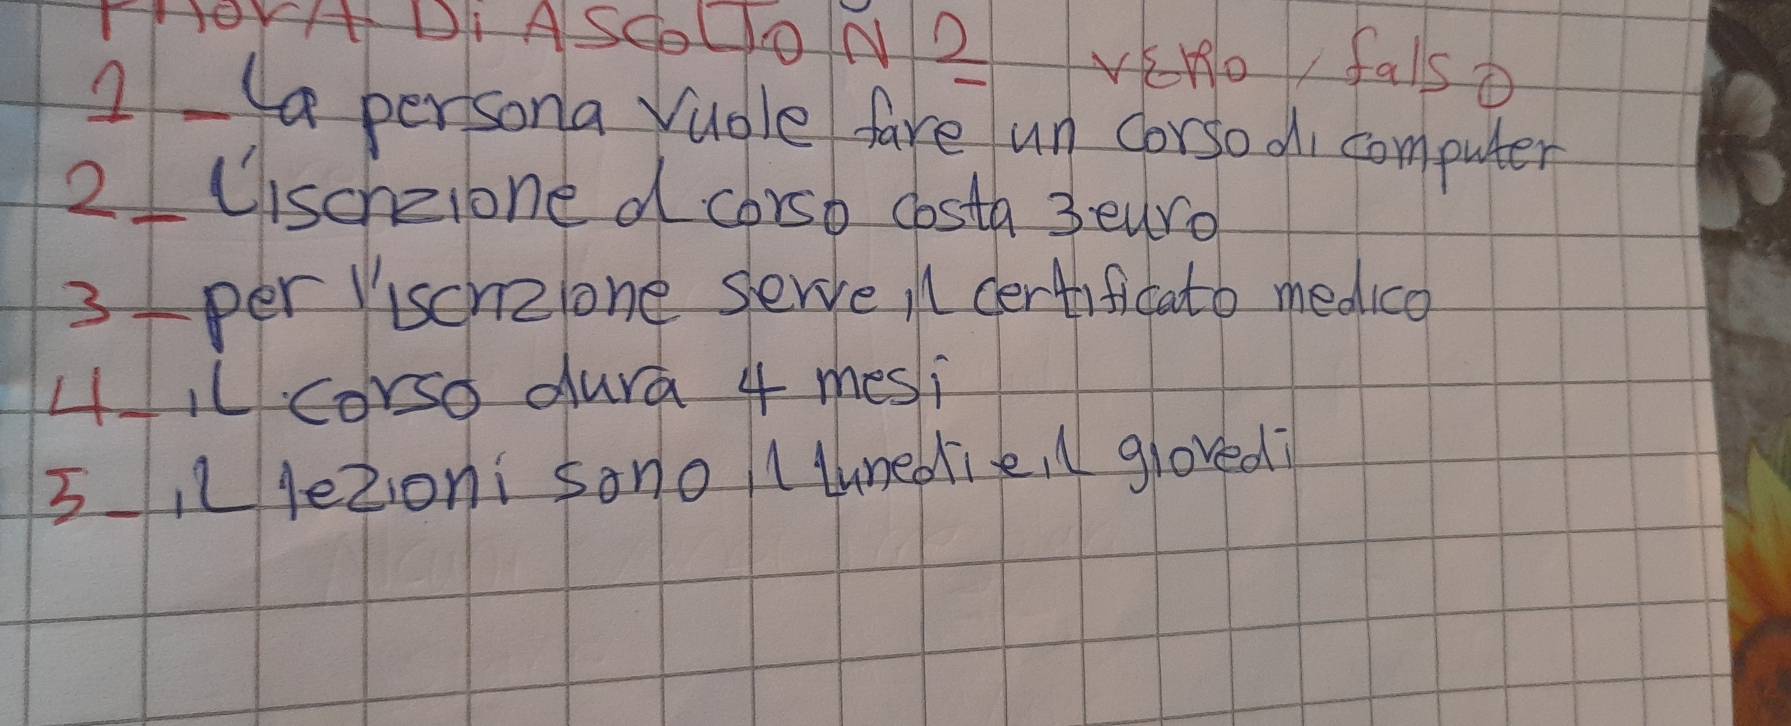 PROVA Di ASCOLTO N 2 VERO / falso
1 - La persona vuole fare un corso di computer
2 - L'iscrizione al corso costa 3 euro
3 - per l'iscrizione serve il certificato medico
4 - il corso dura 4 mesi
5 - il lezioni sono il lunedi e il giovedi